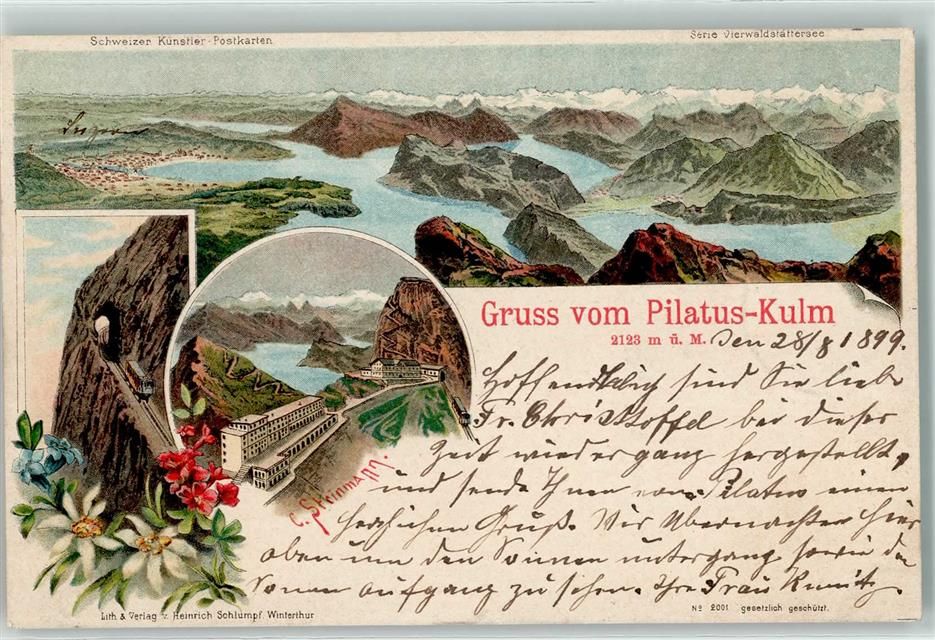 Schweizer Künstler-Postkarten
Serie Vierwaldstättersee
Luzern
Gruss vom Pilatus-Kulm
2123 m ü. M.
den 28/8 1899.
Hoffentlich sind Sie liebe
Fr. Christoffel bei dieser
Zeit wieder ganz hergestellt,
und sende Ihnen vom Pilatus einen
herzlichen Gruß. Wir Übernachten hier
oben um den Sonnen untergang sowie den
Sonnen aufgang zu sehen. Ihre Frau
C. Steinmann.
Lith. & Verlag v. Heinrich Schlumpf. Winterthur
No 2001 gesetzlich geschützt.